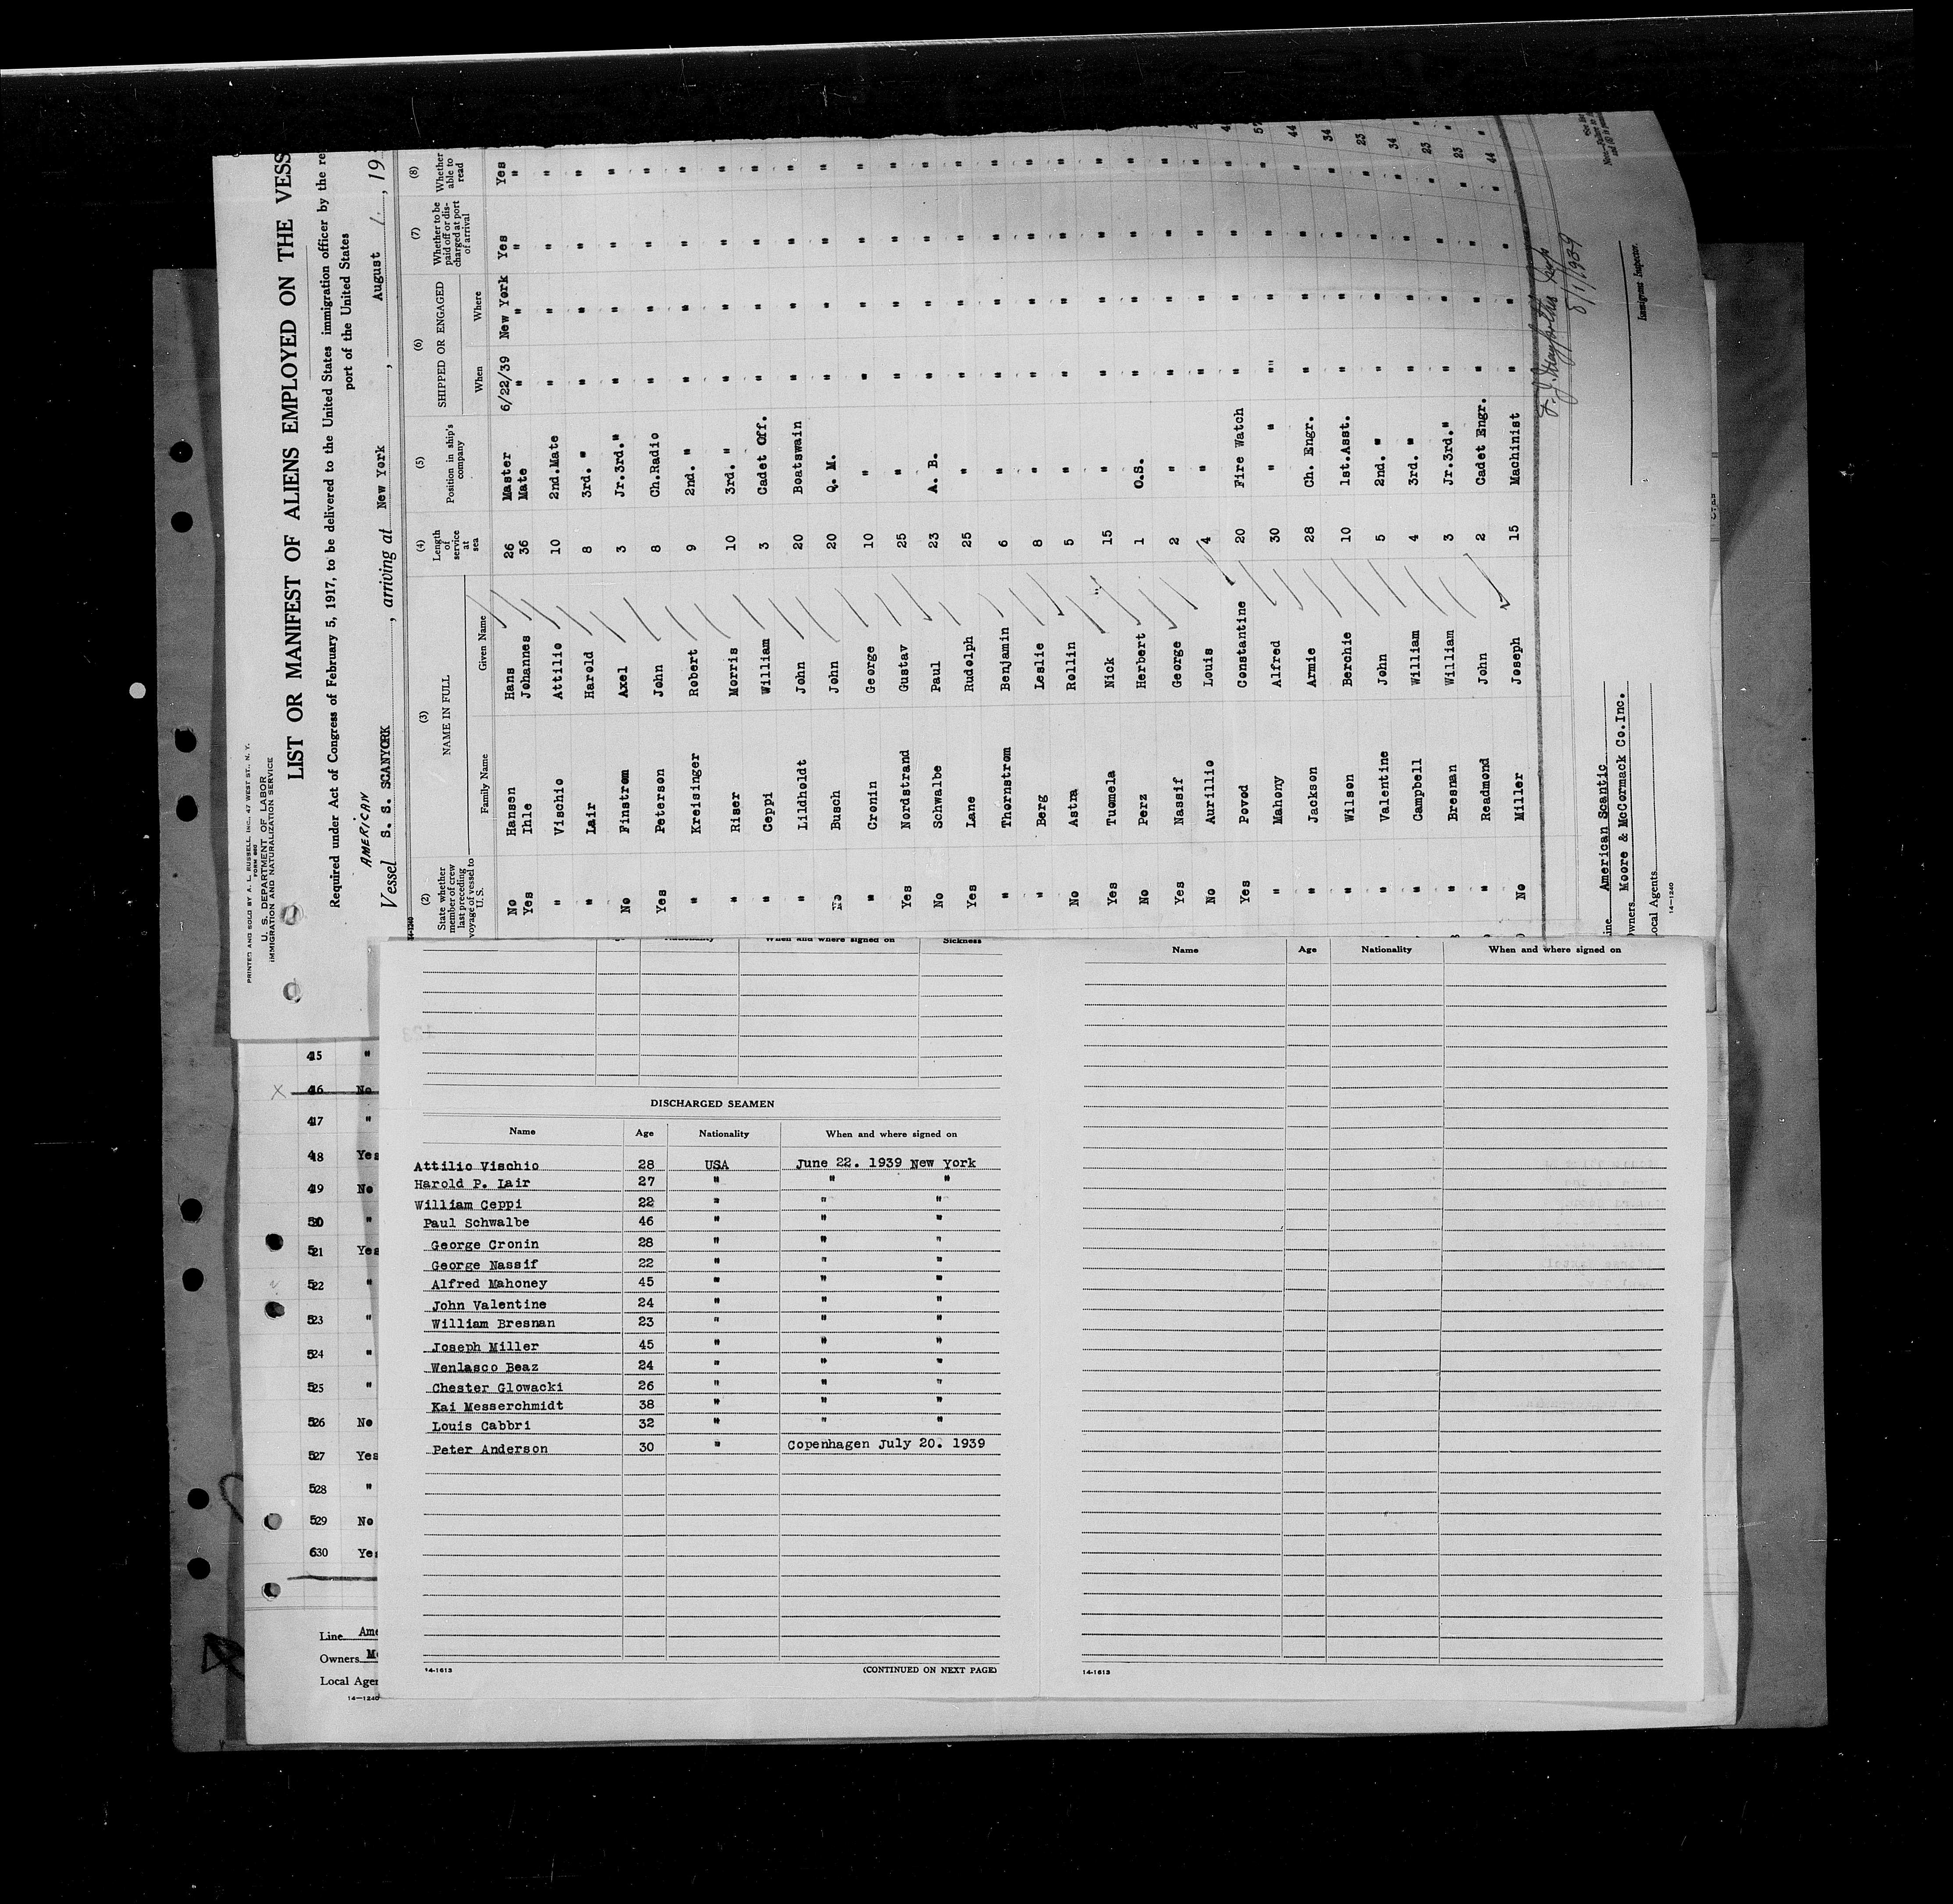 PRINTED AND SOLD BY A. L. RUSSELL, INC., 47 WEST ST., N. Y.
FORM 680
U. S. DEPARTMENT OF LABOR
IMMIGRATION AND NATURALIZATION SERVICE
LIST OR MANIFEST OF ALIENS EMPLOYED ON THE VESS
Required under Act of Congress of February 5, 1917, to be delivered to the United States immigration officer by the re
port of the United States
AMERICAN
Vessel S. S. SCANYORK, arriving at New York, August 1, 193
(2) (3) (4) (5) (6) (7) (8)
State whether member of crew last preceding voyage of vessel to U. S. NAME IN FULL Family Name Given Name Length of service at sea Position in ship's company SHIPPED OR ENGAGED When Where Whether to be paid off or discharged at port of arrival Whether able to read
No Hansen Hans 26 Master 6/22/39 New York Yes Yes
Yes Ihle Johannes 36 Mate " " " "
" Vischio Attilio 10 2nd.Mate " " " "
" Lair Harold 8 3rd. " " " " "
No Finstrom Axel 3 Jr.3rd." " " " "
Yes Peterson John 8 Ch.Radio " " " "
" Kreisinger Robert 9 2nd. " " " " "
" Riser Morris 10 3rd. " " " " "
" Ceppi William 3 Cadet Off. " " " "
" Lildholdt John 20 Boatswain " " " "
No Busch John 20 Q. M. " " " "
" Cronin George 10 " " " " "
Yes Nordstrand Gustav 25 " " " " "
No Schwalbe Paul 23 A. B. " " " "
Yes Lane Rudolph 25 " " " " "
" Thornstrom Benjamin 6 " " " " "
" Berg Leslie 8 " " " " "
No Astra Rollin 5 " " " " "
Yes Tuomela Nick 15 " " " " "
No Perz Herbert 1 O.S. " " " "
Yes Nassif George 2 " " " " "
No Aurillio Louis 4 " " " " "
Yes Povod Constantine 20 Fire Watch " " " "
" Mahony Alfred 30 " " " " " "
" Jackson Armie 28 Ch. Engr. " " " "
" Wilson Berchie 10 1st.Asst. " " " "
" Valentine John 5 2nd. " " " " "
" Campbell William 4 3rd. " " " " "
" Bresnan William 3 Jr.3rd." " " " "
" Readmond John 2 Cadet Engr. " " " "
No Miller Joseph 15 Machinist " " " "
57
44
34
23
34
23
23
44
8/1/1939
Immigrant Inspector.
ine American Scantic
wners Moore & McCormack Co.Inc.
ocal Agents
14—1240
415 "
X 416 No
417 "
418 Yes
419 No
"
521 Yes
522 "
523 "
524 "
525 "
526 No
527 Yes
528 "
529 No
630 Yes
Line Ame
Owners M
Local Agen
14—1240
Nationality When and where signed on Sickness
DISCHARGED SEAMEN
Name Age Nationality When and where signed on
Attilio Vischio 28 USA June 22. 1939 New York
Harold P. Lair 27 " " "
William Ceppi 22 " " "
Paul Schwalbe 46 " " "
George Cronin 28 " " "
George Nassif 22 " " "
Alfred Mahoney 45 " " "
John Valentine 24 " " "
William Bresnan 23 " " "
Joseph Miller 45 " " "
Wenlasco Beaz 24 " " "
Chester Glowacki 26 " " "
Kai Messerchmidt 38 " " "
Louis Cabbri 32 " " "
Peter Anderson 30 " Copenhagen July 20. 1939
14-1613 (CONTINUED ON NEXT PAGE)
Name Age Nationality When and where signed on
14-1613